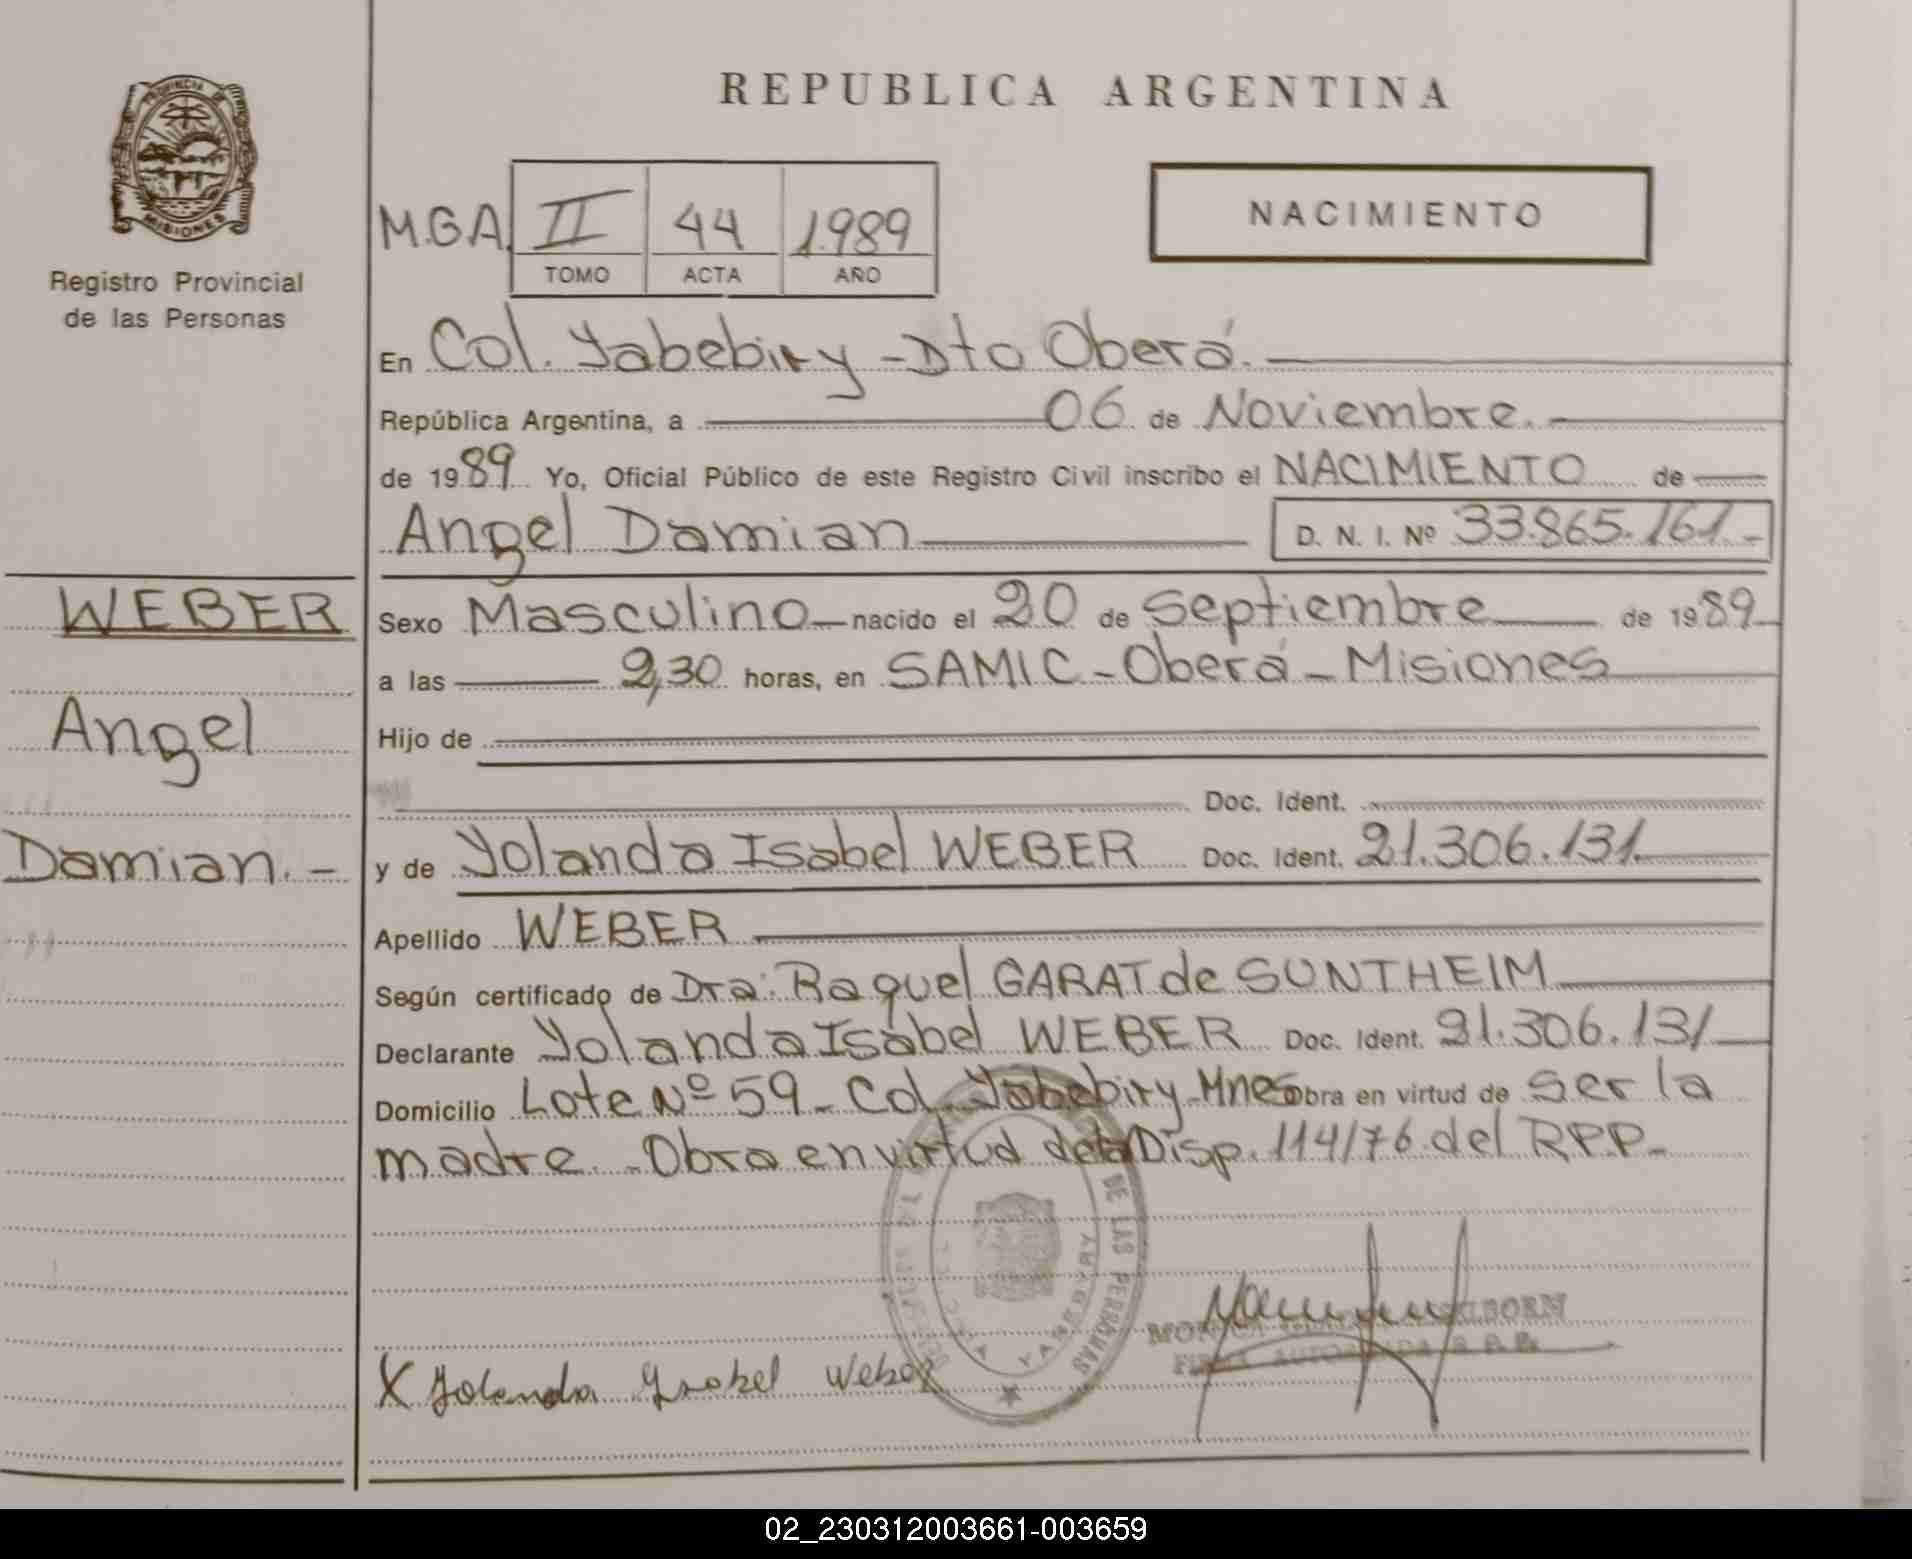 PROVINCIA DE
MISIONES
Registro Provincial
de las Personas
REPUBLICA ARGENTINA
M.G.A. II 44 1989
TOMO ACTA AÑO
NACIMIENTO
En Col. Yabebiry - Dto Oberá.
República Argentina, a 06 de Noviembre.
de 1989 Yo, Oficial Público de este Registro Civil inscribo el NACIMIENTO de
Angel Damian D. N. I. Nº 33.865.161.-
WEBER
Angel
Damian.-
Sexo Masculino nacido el 20 de Septiembre de 1989
a las 2,30 horas, en SAMIC - Oberá - Misiones
Hijo de
Doc. Ident.
y de Yolanda Isabel WEBER Doc. Ident. 21.306.131.
Apellido WEBER
Según certificado de Dra: Raquel GARAT de SUNTHEIM
Declarante Yolanda Isabel WEBER Doc. Ident. 21.306.131
Domicilio Lote Nº 59 - Col. Yabebiry - Mnes Obra en virtud de ser la
madre. - Obra en virtud de la Disp. 114/76 del RPP.-
DE LAS PERSONAS
YABEBYRY
X Yolanda Ysabel Weber
FIRMA AUTORIZADA R.P.P.
02_230312003661-003659